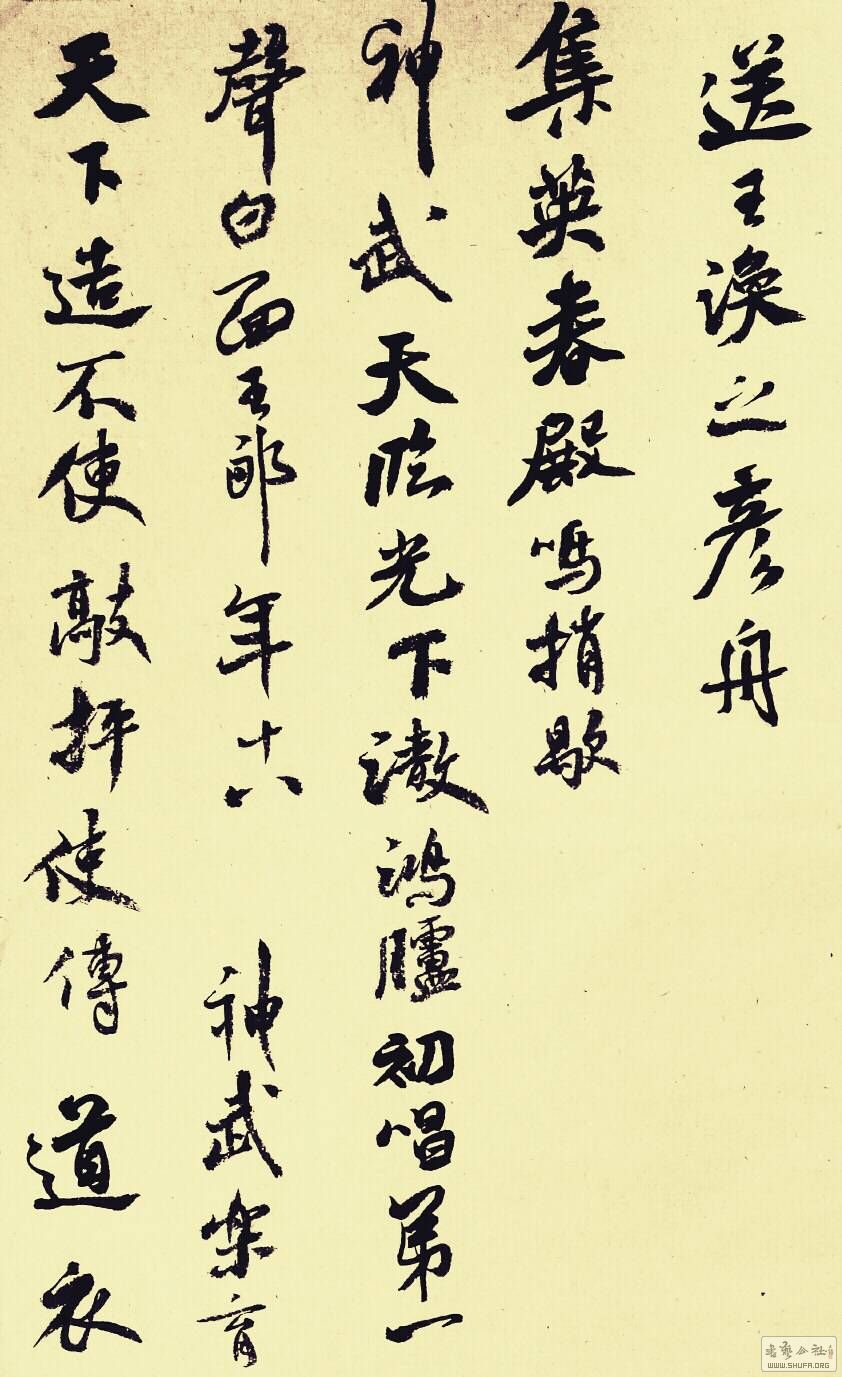 送王渙之彥舟
集英春殿鳴捎歇
神武天臨光下澈鴻臚初唱第一
聲白面王郎年十八神武樂育
天下造不使敲抨使傳道衣
書藝公社
WWW.SHUFA.ORG